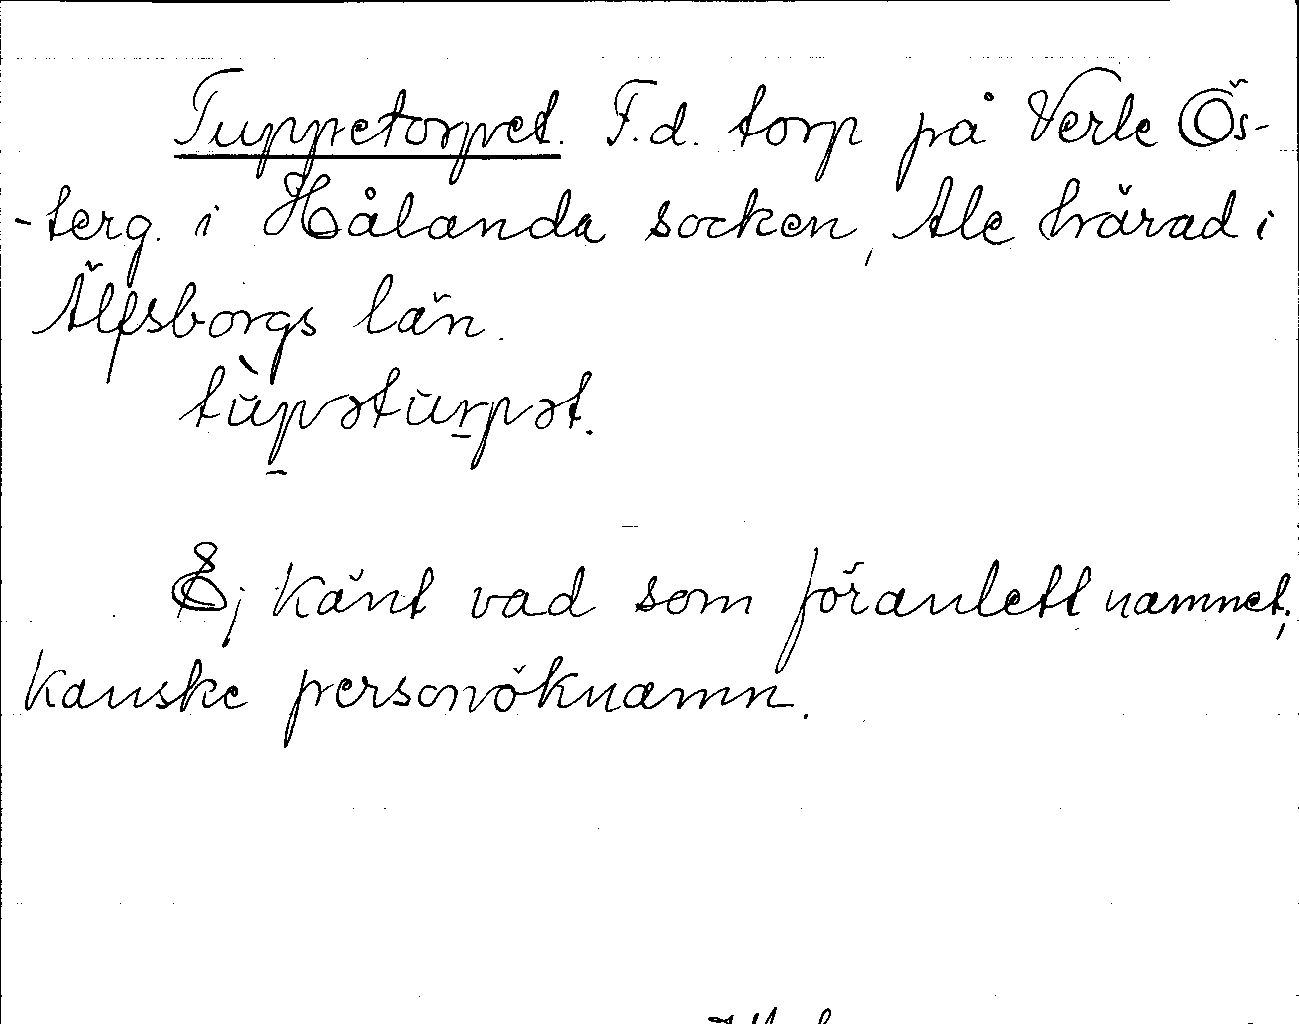 Tuppetorpet. F.d. torp på Verle Ös-
-terg. i Hålanda socken, Ale härad i
Älfsborgs län.
tùpəturpət.
Ej känt vad som föranlett namnet;
kanske personöknamn.